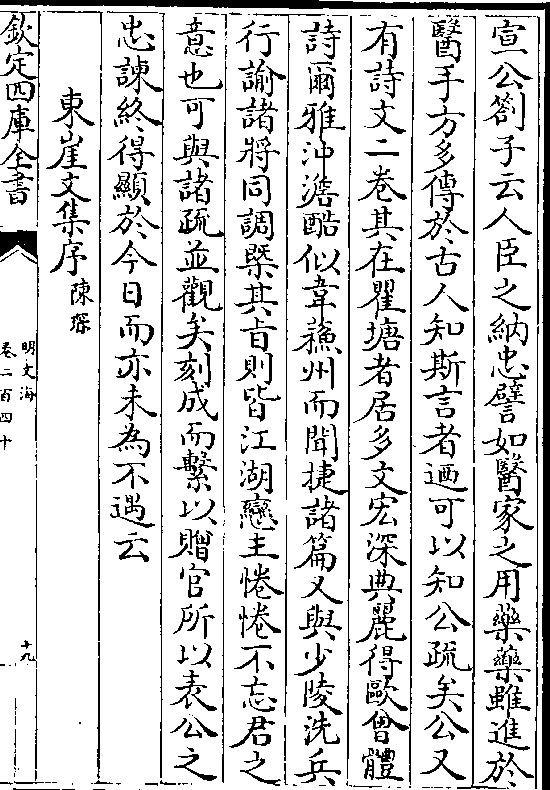 宣公劄子云人臣之納忠譬如醫家之用藥藥雖進於
醫手方多傳於古人知斯言者迺可以知公疏矣公又
有詩文二卷其在瞿塘者居多文宏深典麗得歐曾體
詩爾雅沖澹酷似韋蘓州而聞捷諸篇又與少陵洗兵
行諭諸將同調槩其旨則皆江湖戀主惓惓不忘君之
意也可與諸疏並觀矣刻成而繫以贈官所以表公之
忠諫終得顯於今日而亦未為不遇云
東崖文集序 陳琛
欽定四庫全書
明文海
卷二百四十
十九